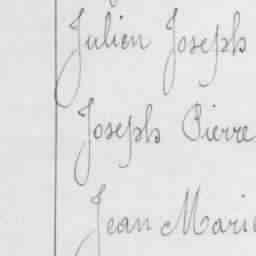 Julien Joseph
Joseph Pierre
Jean Marie